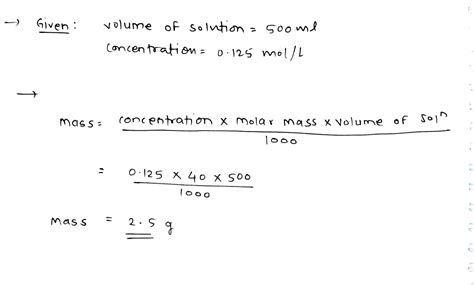 → Given: volume of solution = 500 ml
concentration = 0.125 mol/L
→
mass = concentration x molar mass x volume of solⁿ
1000
= 0.125 x 40 x 500
1000
mass = 2.5 g